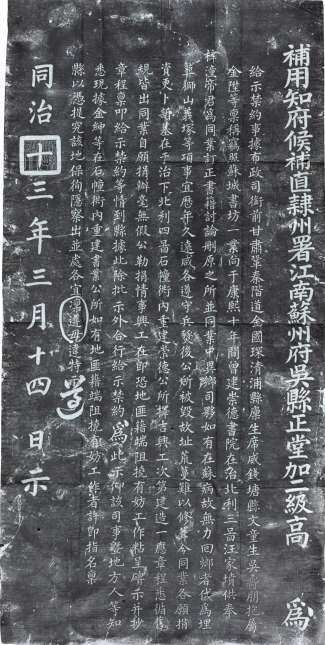 補用知府候補直隸州署江南蘇州府吳縣正堂加二級高 為
給示禁約事據布政司銜前甘肅鞏秦階道金國琛清浦縣廩生席咸錢塘縣文童生吳 朋抱屬
金陞等稟稱竊照蘇城書坊一業向于康熙十年間曾建崇德書院在治北利三啚汪家墳供奉
梓潼帝君為同業訂正書籍討論刪原之所並同業中異鄉司夥如有在蘇病故無力回鄉者代為埋
葬獅山義塚等項事宜歷年久遠咸各遵守兵燹後公所被毀故址荒蔓難以修 今同業各願捐
資更卜新基在于治下北利四啚石幢衖內重建崇德公所擇吉興工次第建造一應章程悉循舊
規皆出同業自願捐辦毫無假公勒捐情事興工在即恐地匪藉端阻撓有妨工作粘呈 示並抄
章程稟叩給示禁約等情到縣據此除批示外合行給示禁約為此示仰該司事暨地方人等知
悉現據金紳等在石幢衖內重建書業公所如有地匪藉端阻撓有妨工作者許即指名稟
縣以憑提究該地保徇隱察出並處各宜凜遵毋違特示
遵
同治十三年三月十四日示